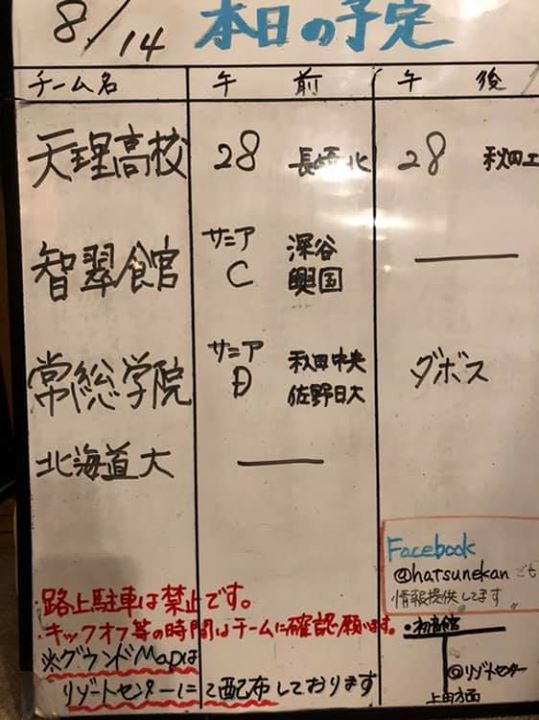 8/14 本日の予定
チーム名 午前 午後
天理高校 28 長崎北 28 秋田工
智翠館 サニア C 深谷 興国 —
常総学院 サニア D 秋田中央 佐野日大 ダボス
北海道大 —
Facebook
@hatsunekan でも
情報提供してます
・路上駐車は禁止です。
・キックオフ等の時間はチームに確認願います。
※グウンドMapは
リゾートセンターにて配布しております
・初音館
◎リゾートセンター
上田方面